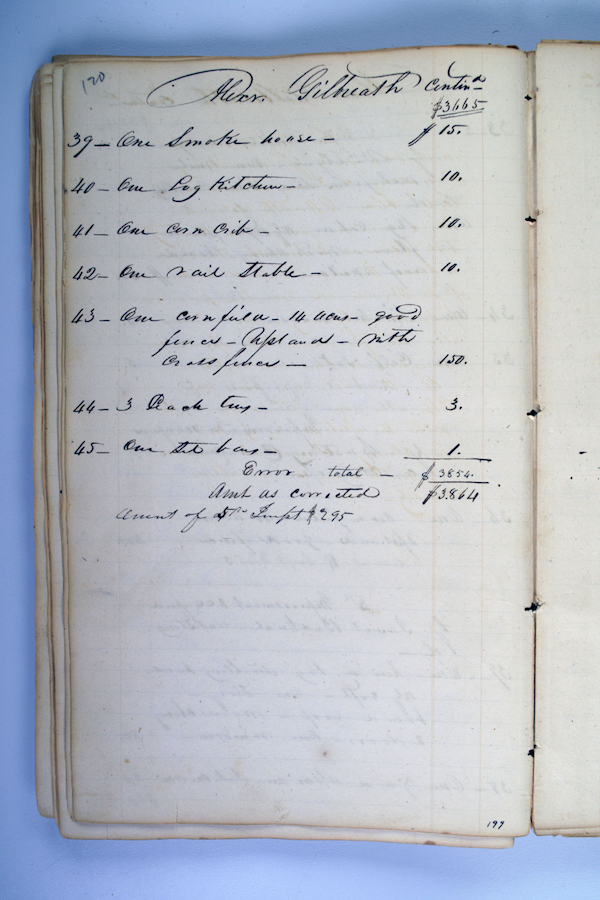 120
Alexr. Gilbreath Contin^d
$3665.
39 – One Smoke house – $ 15.
40 – One Log Kitchen – 10.
41 – One corn crib – 10.
42 – One rail Stable – 10.
43 – One cornfield – 14 acres – good
fence – Upland – with
cross fence – 150.
44 – 3 Peach trees – 3.
45 – One Set bars – 1.
Error total – $ 3854.
Amt as corrected $3864
Amount of 5th Impt $295
199